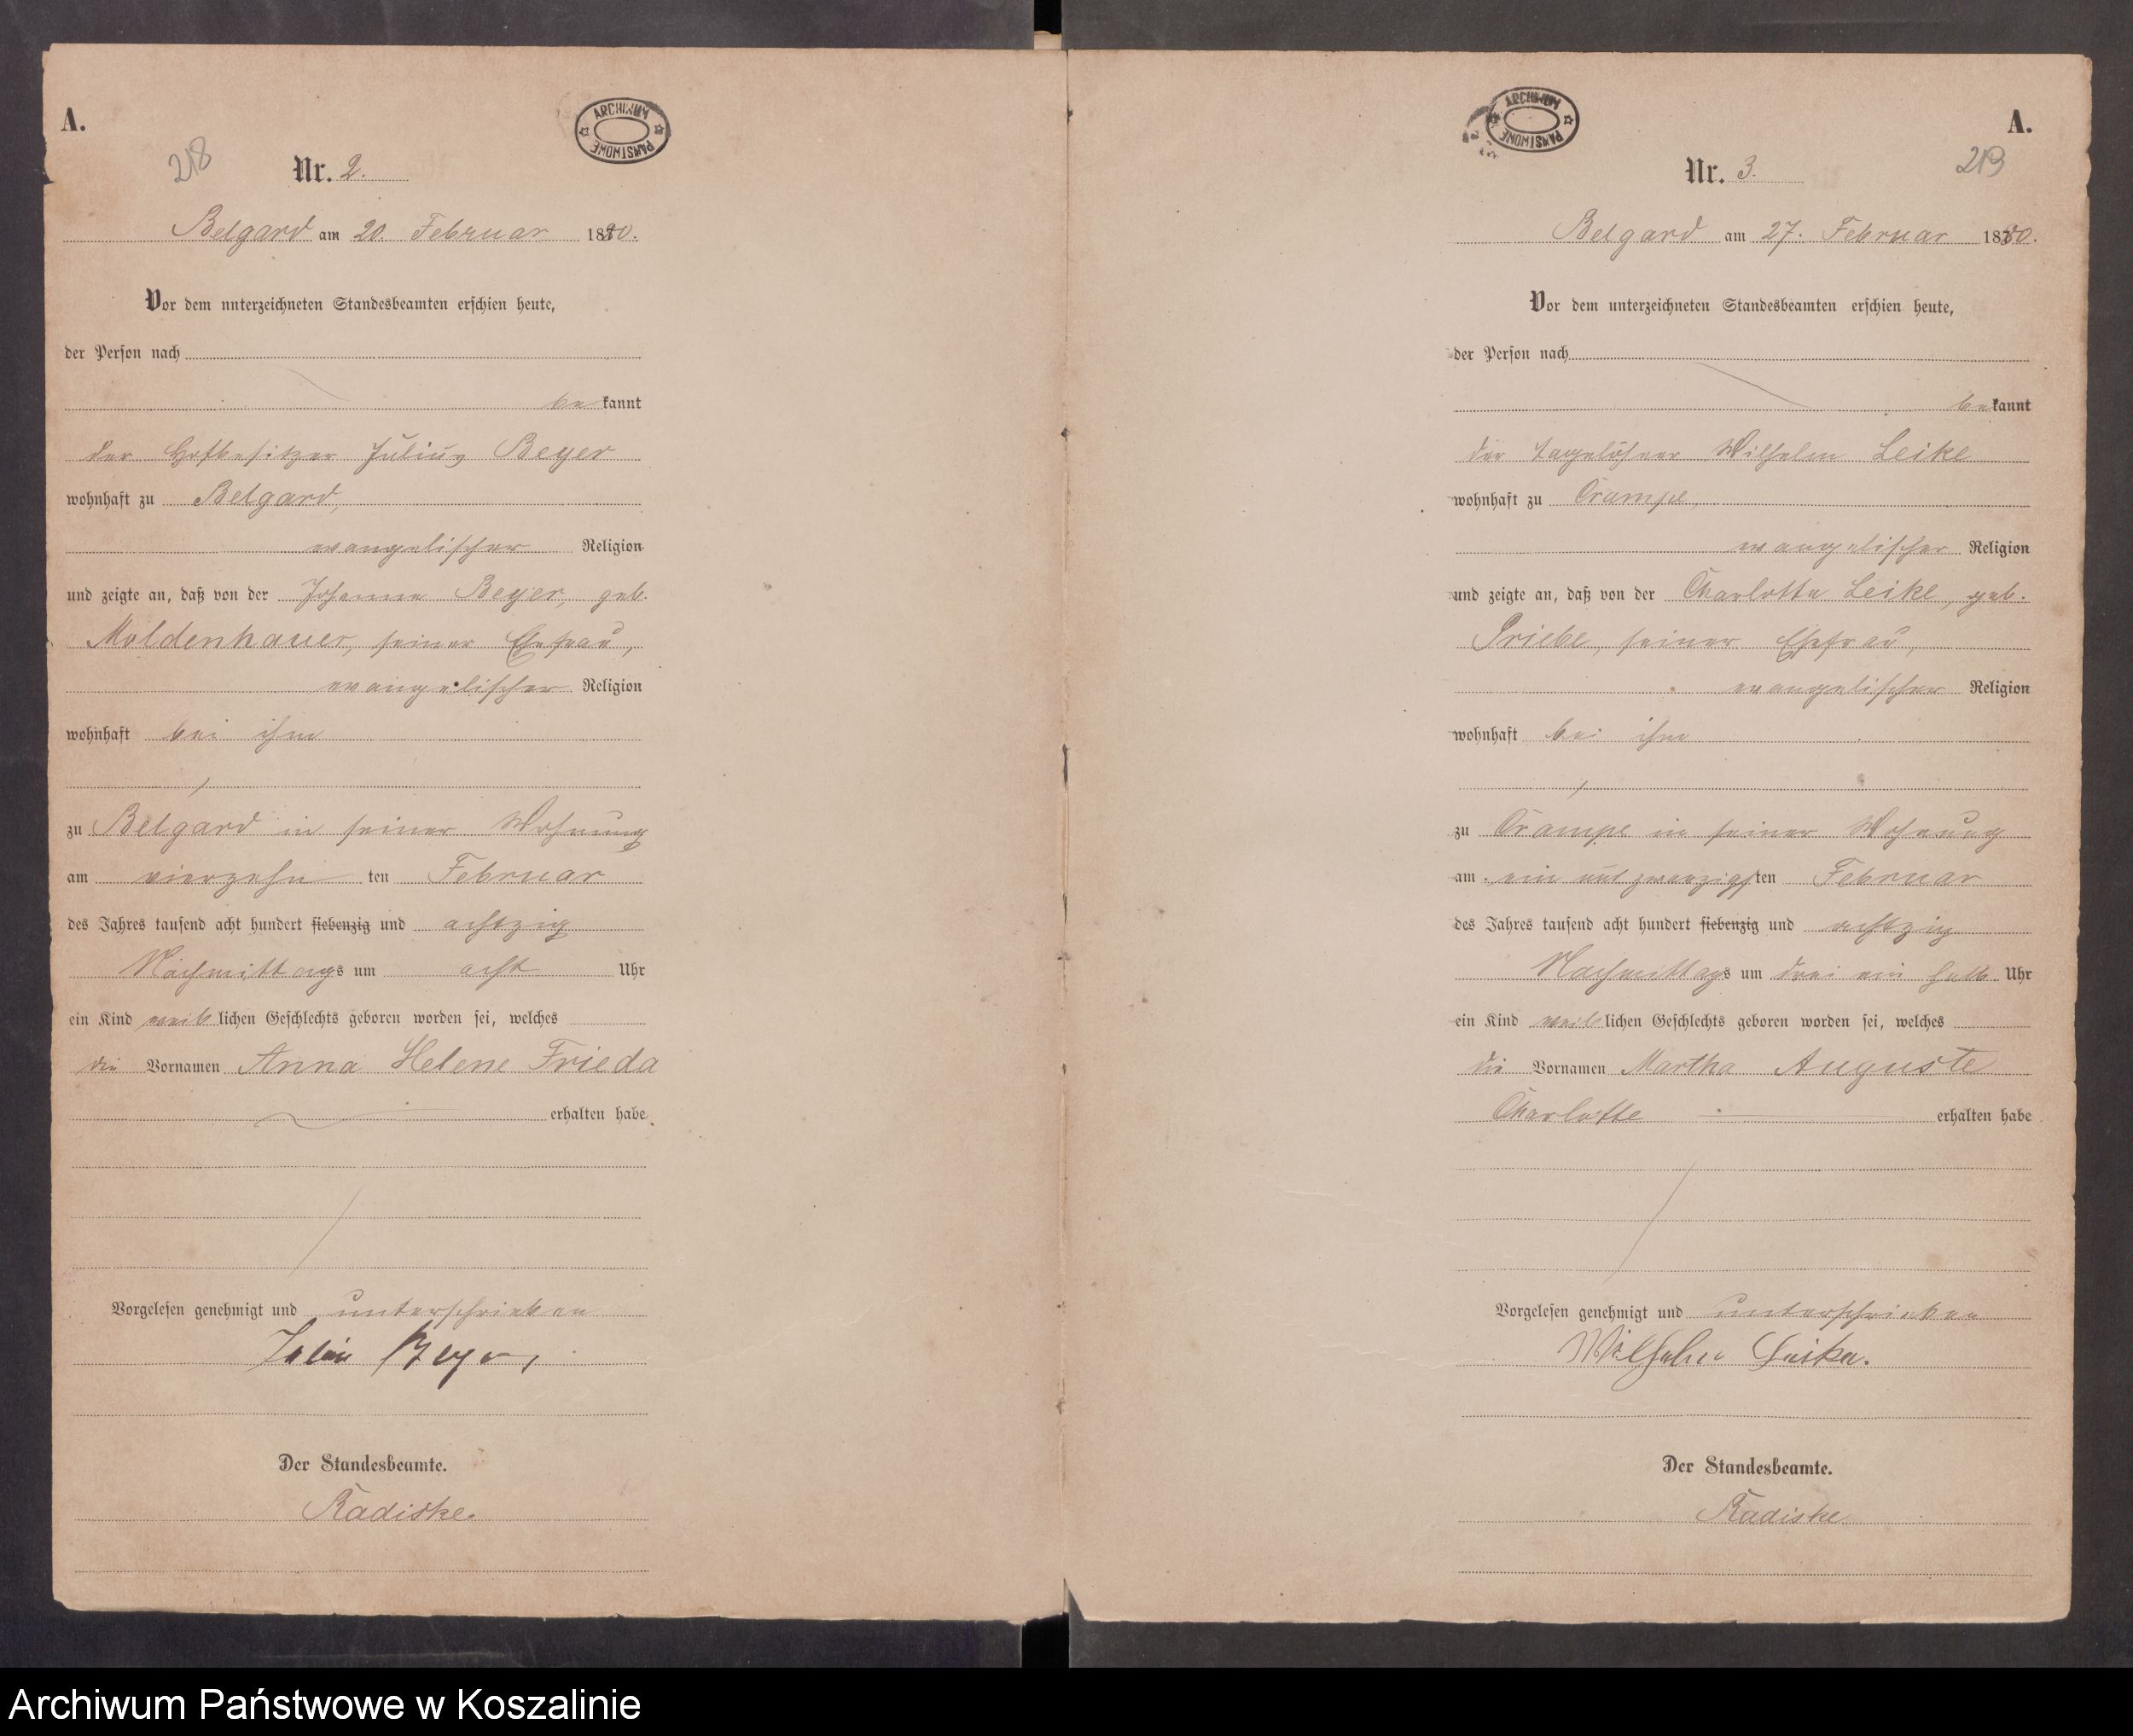 A.
218
ARCHIWUM PAŃSTWOWE
Nr. 2.
Belgard am 20. Februar 1880.
Vor dem unterzeichneten Standesbeamten erschien heute,
der Person nach
bekannt
der Hofbesitzer Julius Beyer
wohnhaft zu Belgard,
evangelischer Religion
und zeigte an, daß von der Johanna Beyer, geb.
Moldenhauer, seiner Ehefrau,
evangelischer Religion
wohnhaft bei ihm
zu Belgard in seiner Wohnung
am vierzehn ten Februar
des Jahres tausend acht hundert siebenzig und achtzig
Nachmittags um acht Uhr
ein Kind weiblichen Geschlechts geboren worden sei, welches
die Vornamen Anna Helene Frieda
erhalten habe.
Vorgelesen genehmigt und unterschrieben
Julius Beyer,
Der Standesbeamte.
Radiske.
A.
219
ARCHIWUM PAŃSTWOWE
Nr. 3.
Belgard am 27. Februar 1880.
Vor dem unterzeichneten Standesbeamten erschien heute,
der Person nach
bekannt
der Tagelöhner Wilhelm Leike
wohnhaft zu Crampe,
evangelischer Religion
und zeigte an, daß von der Charlotte Leike, geb.
Priebe, seiner Ehefrau,
evangelischer Religion
wohnhaft bei ihm
zu Crampe in seiner Wohnung
am ein und zwanzigsten Februar
des Jahres tausend acht hundert siebenzig und achtzig
Nachmittags um drei ein halb Uhr
ein Kind weiblichen Geschlechts geboren worden sei, welches
die Vornamen Martha Auguste
Charlotte erhalten habe
Vorgelesen genehmigt und unterschrieben
Wilhelm Leike.
Der Standesbeamte.
Radiske
Archiwum Państwowe w Koszalinie